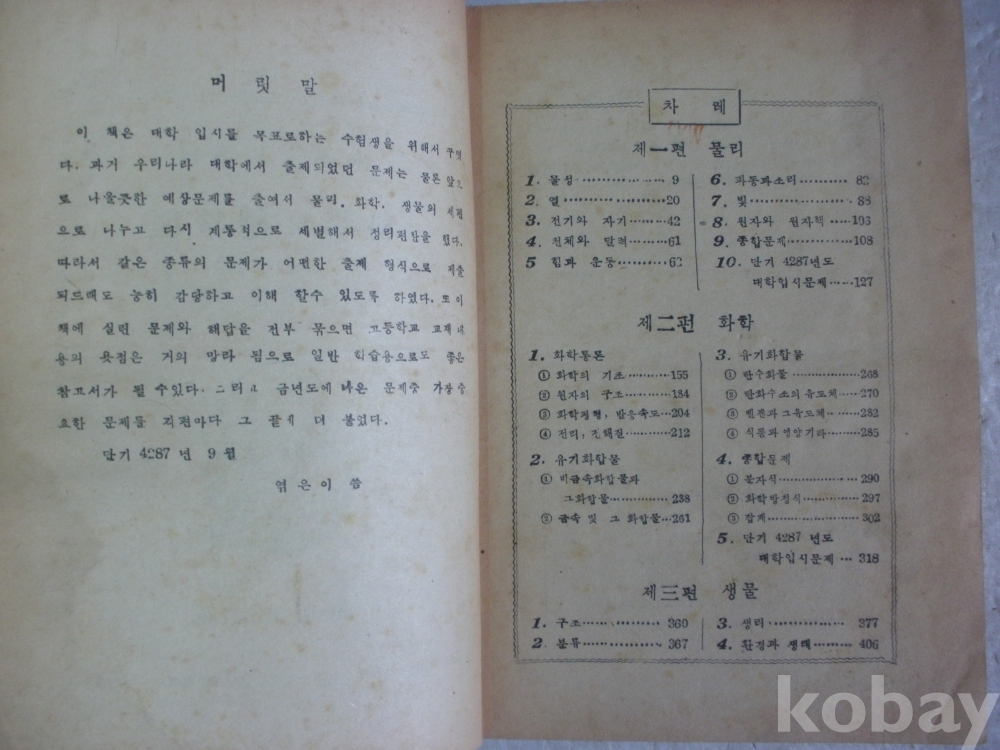 머릿말
이 책은 대학 입시를 목표로하는 수험생을 위해서 꾸몄
다. 과거 우리나라 대학에서 출제되었던 문제는 물론 앞으
로 나올듯한 예상문제를 출여서 물리, 화학, 생물의 세편
으로 나누고 다시 계통적으로 세별해서 정리편찬을 했다.
따라서 같은 종류의 문제가 어떤한 출제 형식으로 제출
되드래도 능히 감당하고 이해 할수 있도록 하였다. 또 이
책에 실린 문제와 해답을 전부 묶으면 고등학교 교재 내
용의 욧점은 거의 망라 됨으로 일반 학습용으로도 좋은
참고서가 될 수있다. 그리고 금년도에 나온 문제중 가장 중
요한 문제를 각편마다 그 끝에 더 붙었다.
단기 4287년 9월
엮은이 씀
차례
제一편 물리
1. 물성 9
2. 열 20
3. 전기와 자기 42
4. 천체와 달력 61
5 힘과 운동 62
6. 파동과소리 82
7. 빛 88
8. 원자와 원자핵 103
9. 종합문제 108
10. 단기 4287년도
대학입시문제 127
제二편 화학
1. 화학통론
① 화학의 기초 155
② 원자의 구조 184
③ 화학평형, 반응속도 204
④ 전리, 전해질 212
2. 유기화합물
① 비금속화합물과
그화합물 238
② 금속 및 그 화합물 261
3. 유기화합물
① 탄수화물 268
② 탄화수소의유도체 270
③ 벤젠과그유도체 282
④ 식품과영양기타 285
4. 종합문제
① 분자식 290
② 화학방정식 297
③ 잡제 302
5. 단기 4287 년도
대학입시문제 318
제三편 생물
1. 구조 360
2. 분류 367
3. 생리 377
4. 환경과 생태 406
kobay